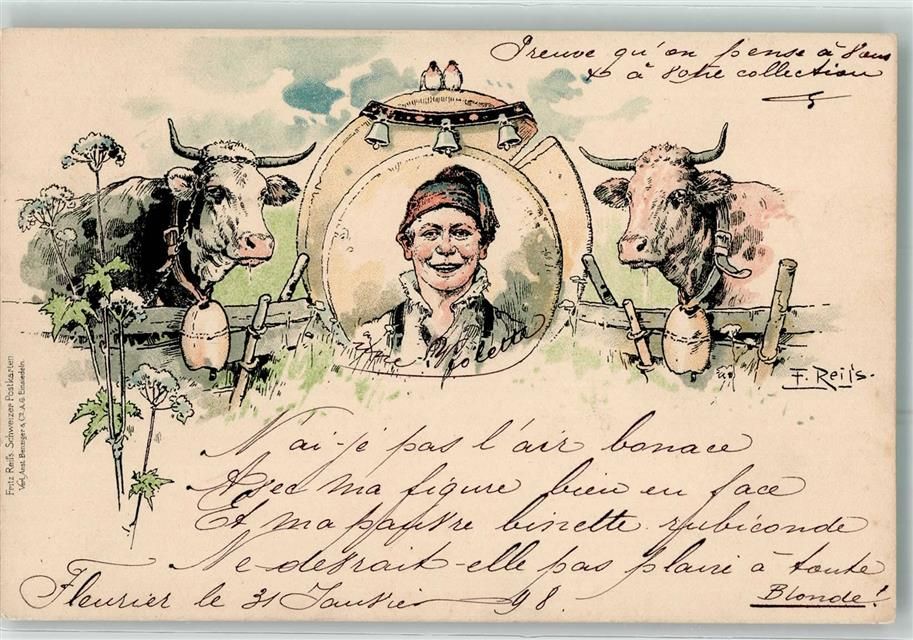 Preuve qu'on pense à vous
& à votre collection
Une Violette
F. Reiſs.
Fritz Reiſs. Schweizer Postkarten
Verl. Anst. Benziger & Co. A.G. Einsiedeln.
N'ai-je pas l'air bonace
Avec ma figure bien en face
Et ma pauvre binette rubiconde
Ne devrait-elle pas plaire à toute
Blonde!
Fleurier le 31 Janvier 98.